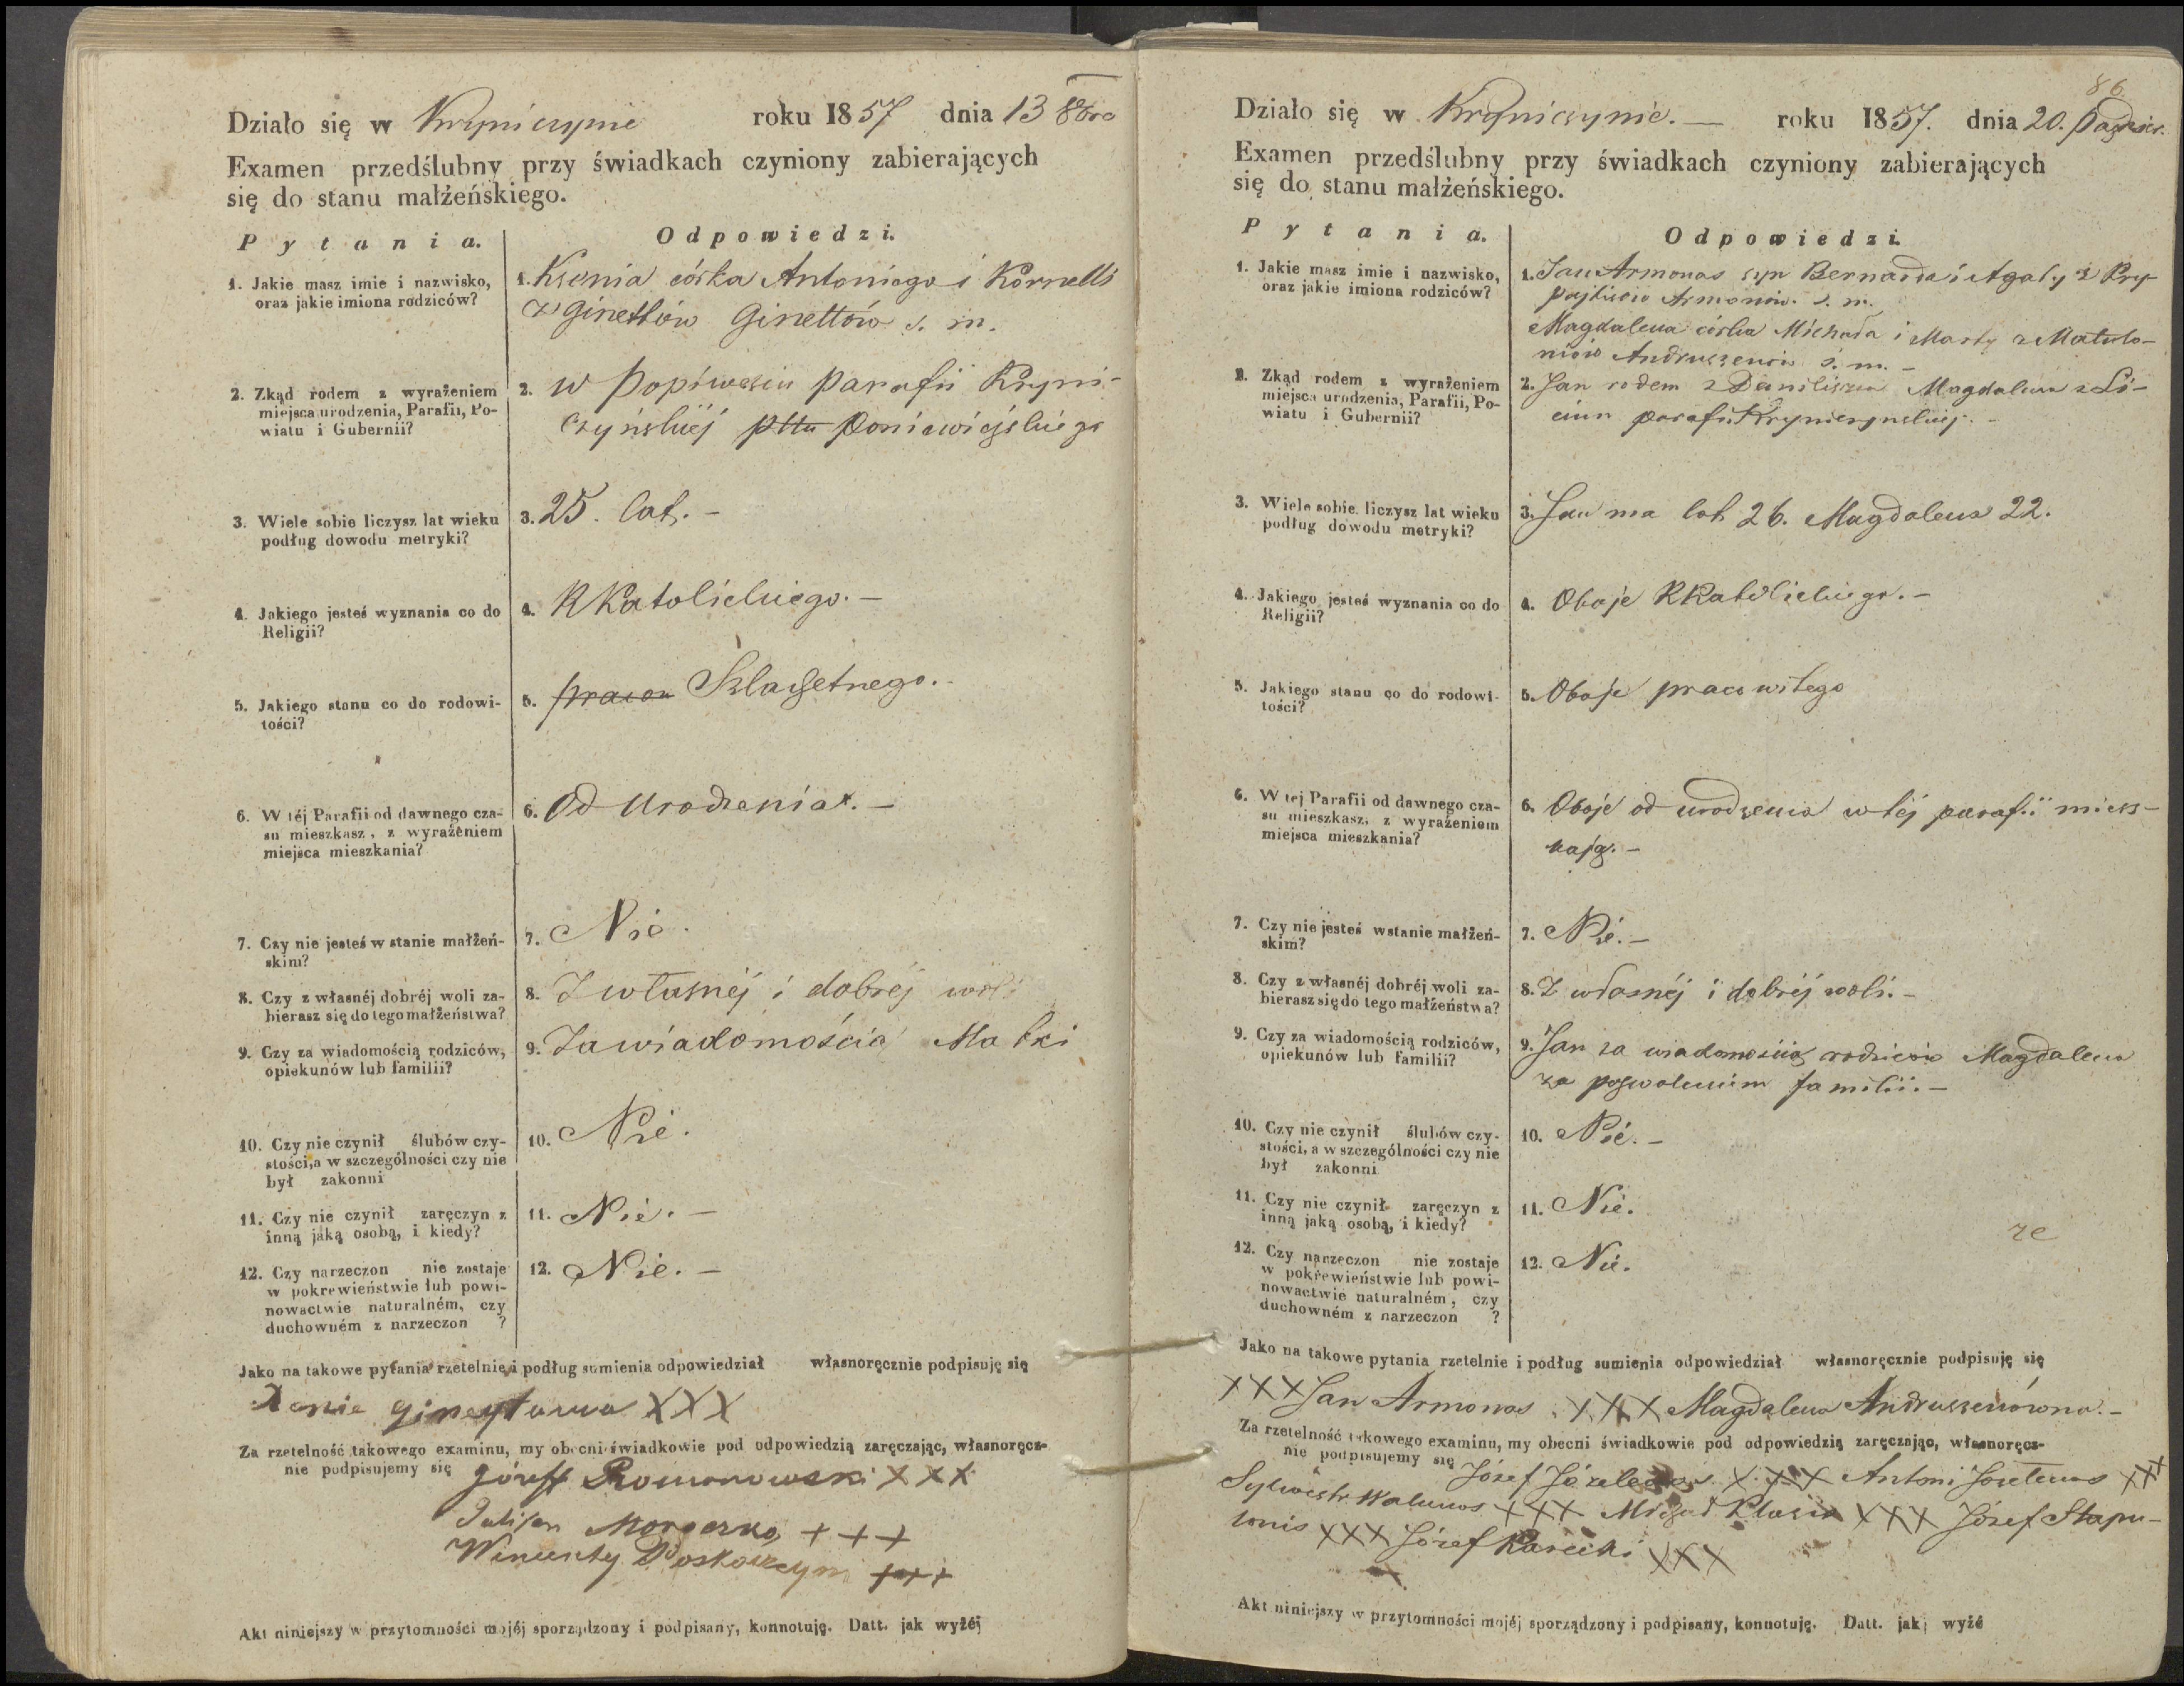 Działo się w Krynicynie roku 1857 dnia 13 8bra
Examen przedślubny przy świadkach czyniony zabierających
się do stanu małżeńskiego.
Pytania. Odpowiedzi.
1. Jakie masz imie i nazwisko,
oraz jakie imiona rodziców?
1. Ksenia córka Antoniego i Kornelli
z Ginettów Ginettów s. m.
2. Zkąd rodem z wyrażeniem
miejsca urodzenia, Parafii, Po-
wiatu i Gubernii?
2. w Popiwesiu parafii Kryni-
czyńskiéj pttu Poniewiejskiego
3. Wiele sobie liczysz lat wieku
podług dowodu metryki?
3. 25. lat. –
4. Jakiego jesteś wyznania co do
Religii?
4. RKatolickiego. –
5. Jakiego stanu co do rodowi-
tości?
5. pracow Szlachetnego.
6. W téj Parafii od dawnego cza-
su mieszkasz, z wyrażeniem
miejsca mieszkania?
6. Od Urodzenia. –
7. Czy nie jesteś w stanie małżeń-
skim?
7. Nie.
8. Czy z własnéj dobréj woli za-
bierasz się do tego małżeństwa?
8. Z własnéj i dobréj woli
9. Czy za wiadomością rodziców,
opiekunów lub familii?
9. Za wiadomością Matki
10. Czy nie czynił ślubów czy-
stości, a w szczególności czy nie
był zakonni
10. Nie.
11. Czy nie czynił zaręczyn z
inną jaką osobą, i kiedy?
11. Nie. –
12. Czy narzeczon nie zostaje
w pokrewieństwie lub powi-
nowactwie naturalném, czy
duchowném z narzeczon ?
12. Nie. –
Jako na takowe pytania rzetelnie i podług sumienia odpowiedział własnoręcznie podpisuję się
XXX
Za rzetelność takowego examinu, my obecni świadkowie pod odpowiedzią zaręczając, własnoręcz-
nie podpisujemy się Józef Romanowski XXX
+++
Wincenty +++
Akt niniejszy w przytomności mojéj sporządzony i podpisany, konnotuję. Datt. jak wyżéj
86.
Działo się w Krynicynie. – roku 1857. dnia 20. Paździer.
Examen przedślubny przy świadkach czyniony zabierających
się do stanu małżeńskiego.
Pytania. Odpowiedzi.
1. Jakie masz imie i nazwisko,
oraz jakie imiona rodziców?
1. Jan Armonas syn Bernarda i Agaty z
Armonów. s. m.
Magdalena córka Michała i Marty z Matulo-
niów Andruszeniów s. m. –
2. Zkąd rodem z wyrażeniem
miejsca urodzenia, Parafii, Po-
wiatu i Gubernii?
2. Jan rodem z Daniliszek Magdalena z Li-
ciun parafii Krynicynskiej. –
3. Wiele sobie liczysz lat wieku
podług dowodu metryki?
3. Jan ma lat 26. Magdalena 22.
4. Jakiego jesteś wyznania co do
Religii?
4. Oboje RKatolickiego. –
5. Jakiego stanu co do rodowi-
tości?
5. Oboje pracowitego
6. W tej Parafii od dawnego cza-
su mieszkasz, z wyrażeniem
miejsca mieszkania?
6. Oboje od urodzenia w téj parafii miesz-
kają. –
7. Czy nie jesteś wstanie małżeń-
skim?
7. Nie. –
8. Czy z własnéj dobréj woli za-
bierasz się do tego małżeństwa?
8. Z własnéj i dobréj woli. –
9. Czy za wiadomością rodziców,
opiekunów lub familii?
9. Jan za wiadomością rodziców Magdalena
za pozwoleniem familii. –
10. Czy nie czynił ślubów czy-
stości, a w szczególności czy nie
był zakonni
10. Nie. –
11. Czy nie czynił zaręczyn z
inną jaką osobą, i kiedy?
11. Nie.
ze
12. Czy narzeczon nie zostaje
w pokrewieństwie lub powi-
nowactwie naturalném, czy
duchowném z narzeczon ?
12. Nie.
Jako na takowe pytania rzetelnie i podług sumienia odpowiedział własnoręcznie podpisuję się
XXX Jan Armonas. XXX Magdalena Andruszeniówna. –
Za rzetelność takowego examinu, my obecni świadkowie pod odpowiedzią zaręczając, własnoręcz-
nie podpisujemy się Józef XXX Antoni XXX
Sylwestr XXX Michał XXX Józef Stapu-
lonis XXX Józef Karecki XXX
Akt niniejszy w przytomności mojéj sporządzony i podpisany, konnotuję. Datt. jak wyżé